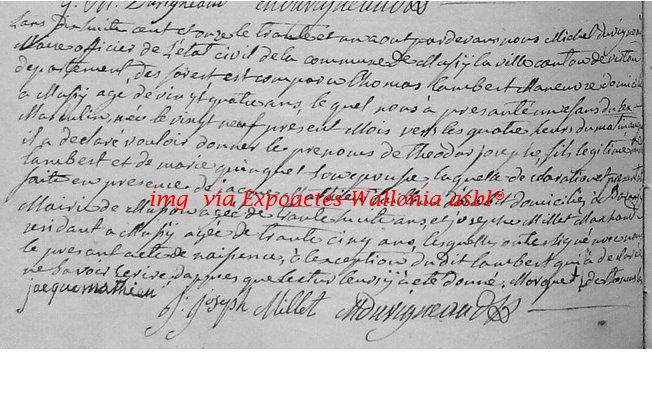 G. M. Duvigneaud
L'ans dix huite cent et onze le trante et un aout par devans nous Michel Duvigneau
Maire officier de l'état civil de la commune de Mussy la ville canton de virton
departement des forest est comparu Thomas lambert Maneuvre domicilie
a Mussy age de vingt quatre ans, lequel nous a presanté un enfans du sex
Masculin, nee le vingt neuf present mois vers les quatre heurs du matin
il a déclaré vouloir donner le prenoms de Theodor Josephe, fils legitime
lambert et de marie quinquet son epouse laquelle declaration et
faite en presence de Jacque domicilies a
Mairie de Musson agée de trante ans et josephe Millet Marchant
residant a Mussy agée de trante cinq ans, lesquelle ont signé avec nous
le present acte de naissence, a l'exception du dit lambert qui a declaré
ne savoir ecrire, dapres que lectur leurs y a eté donné. Marque † de Thomas
jacque mathieu J. Joseph Millet MDuvigneaud
img via Expoactes-Wallonia asbl©